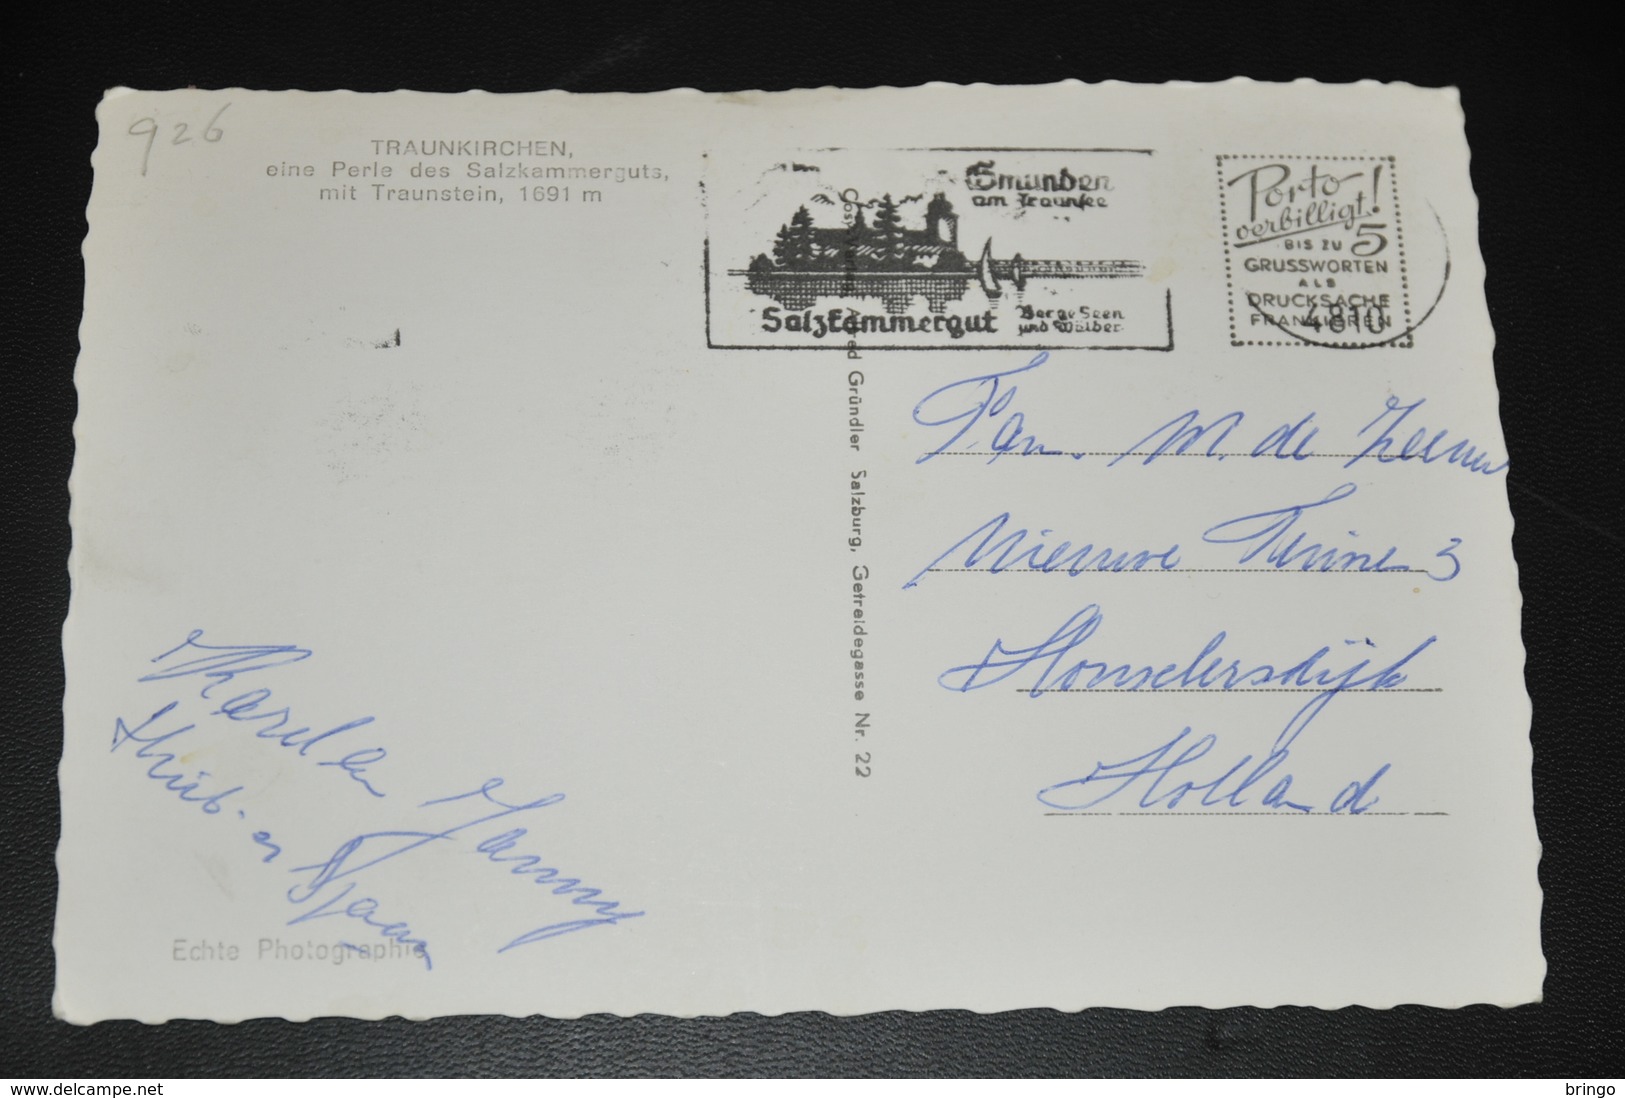 926
TRAUNKIRCHEN,
eine Perle des Salzkammerguts,
mit Traunstein, 1691 m
Gmunden
am Traunsee
Salzkammergut
Berge Seen
und Wälder
Porto
verbilligt!
BIS ZU 5
GRUSSWORTEN
ALS
DRUCKSACHE
FRANKIEREN
4810
Alfred Gründler Salzburg, Getreidegasse Nr. 22
Fam. M. de Zeeuw
Nieuwe Tuinen 3
Honselersdijk
Holland
Janny
Echte Photographie
www.delcampe.net
bringo